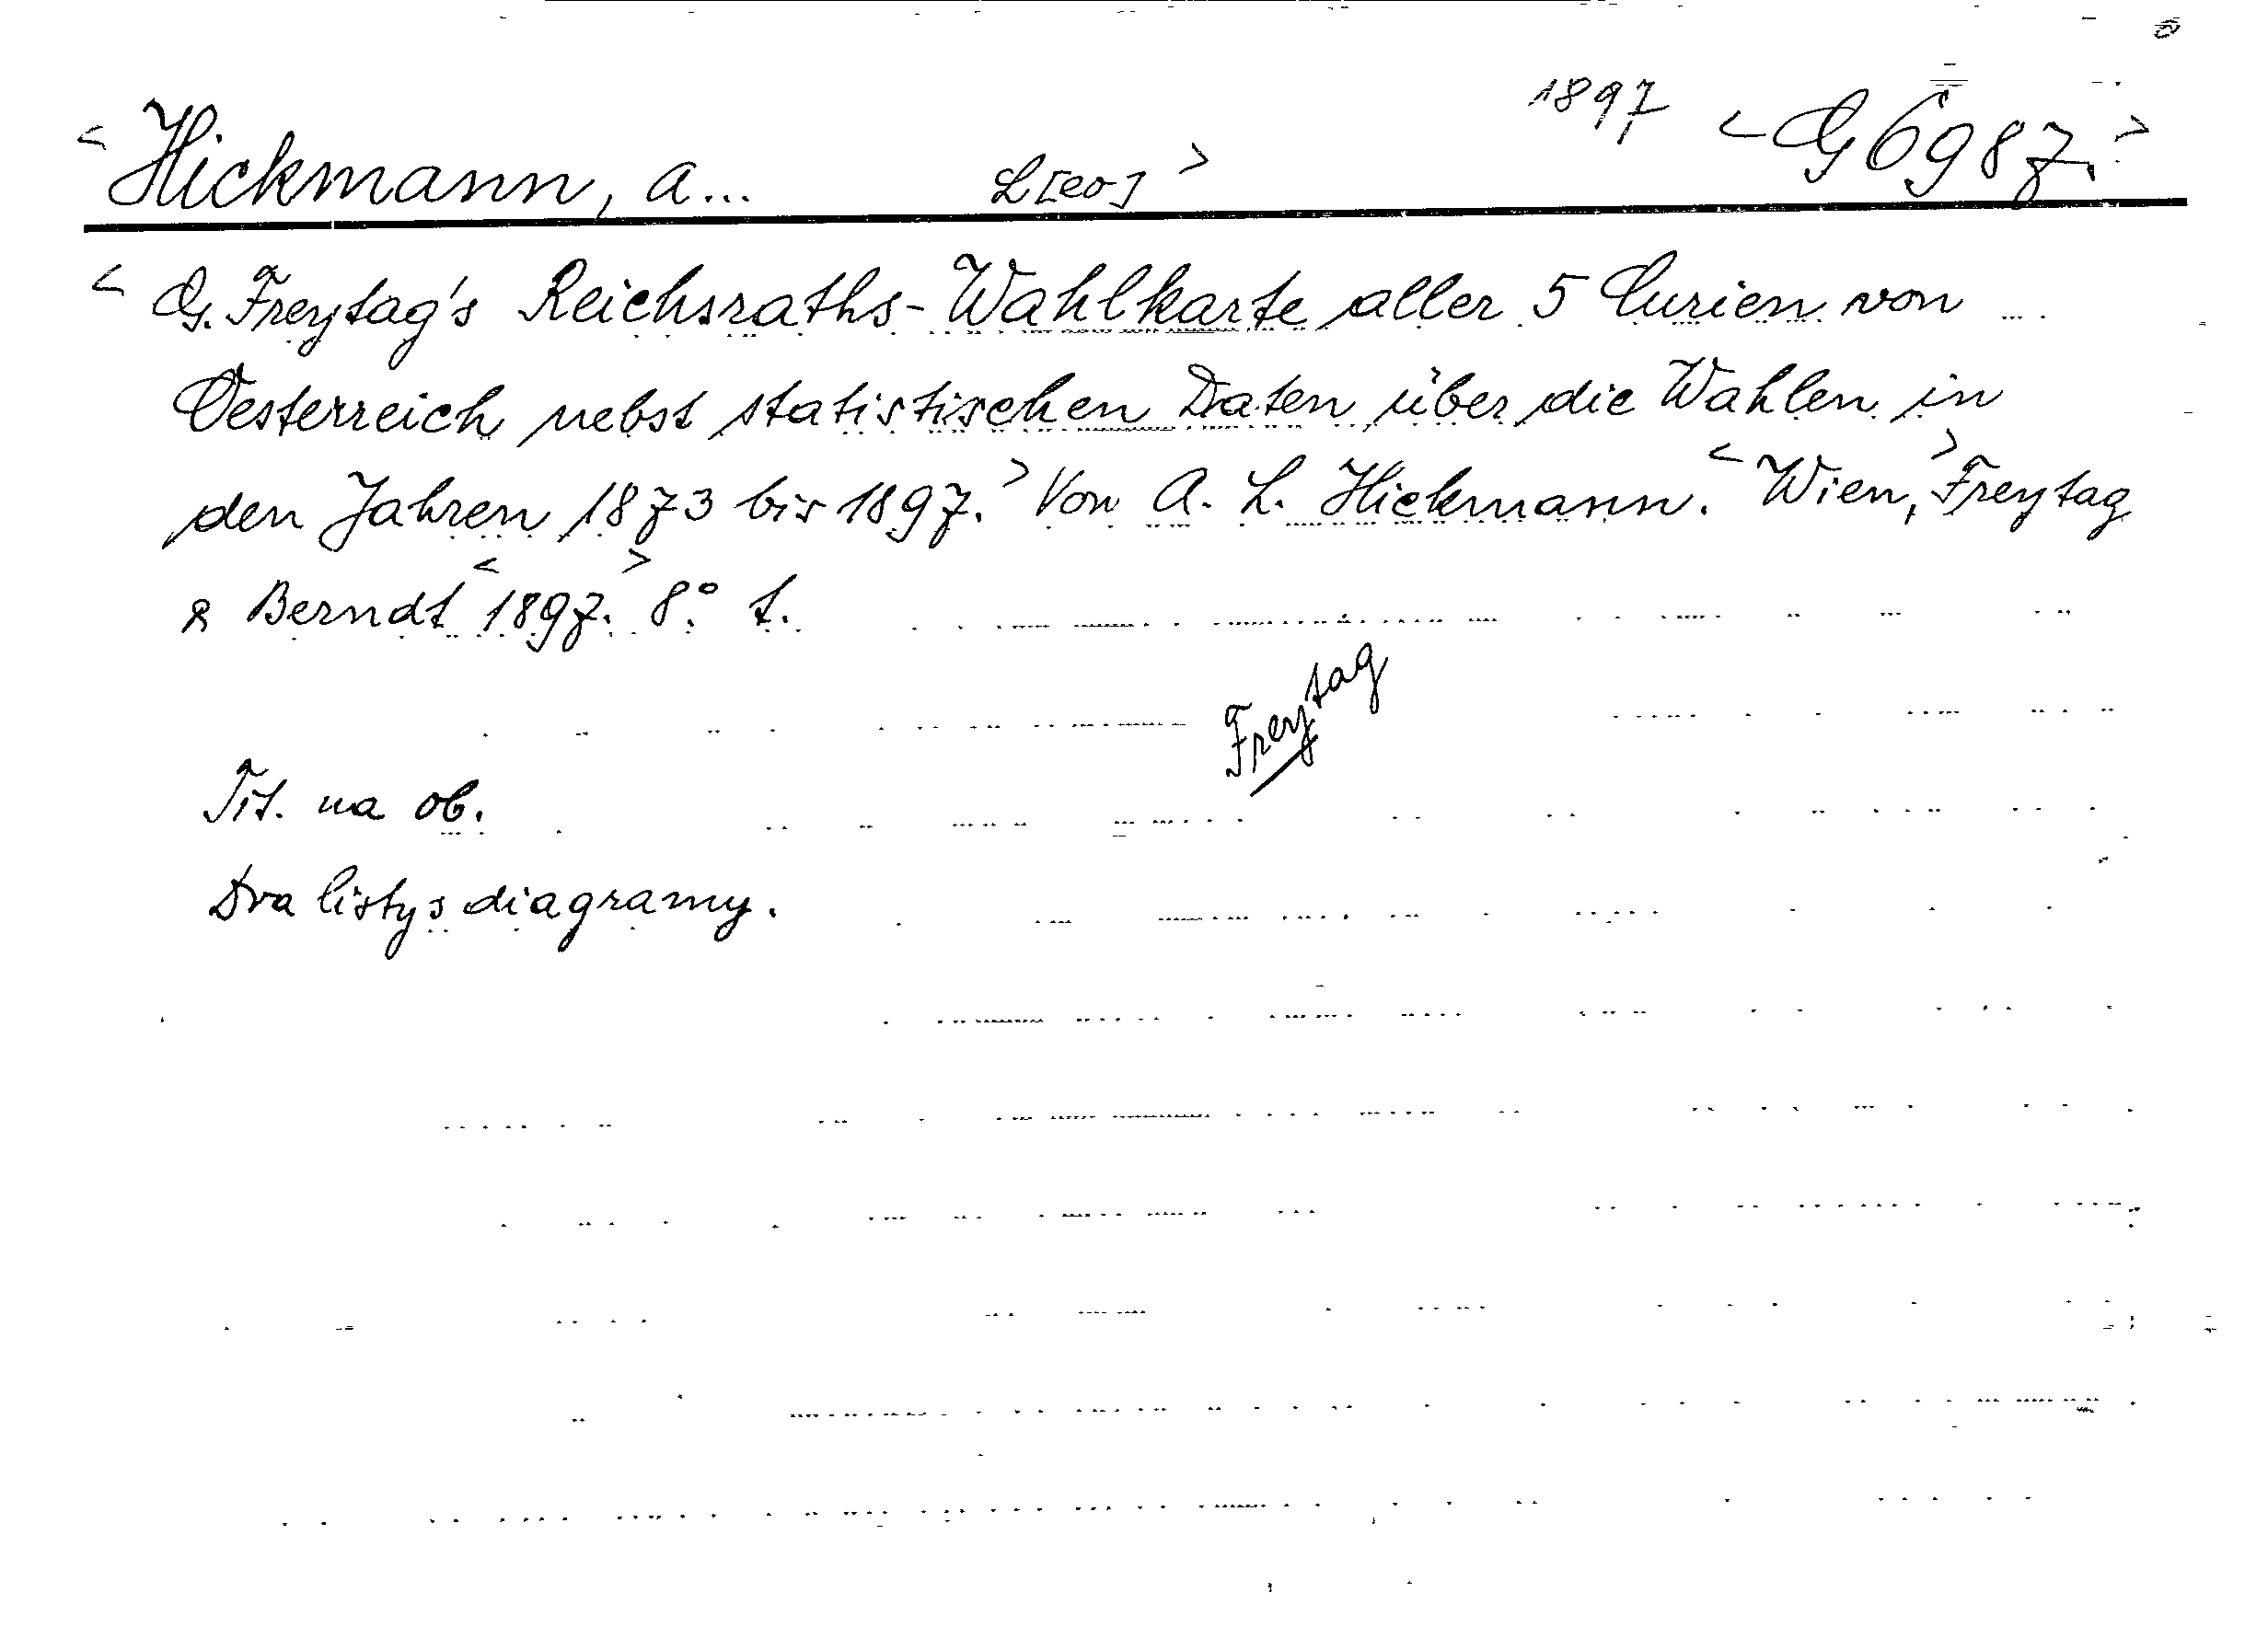 1897 <G 6987.>
<Hickmann, A... L[eo]>
<G. Freytag's Reichsraths-Wahlkarte aller 5 Curien von
Oesterreich nebst statistischen Daten über die Wahlen in
den Jahren 1873 bis 1897.> Von A. L. Hickmann. <Wien,> Freytag
& Berndt <1897.> 8° t.
Freytag
Tit. na ob.
Dva listy s diagramy.